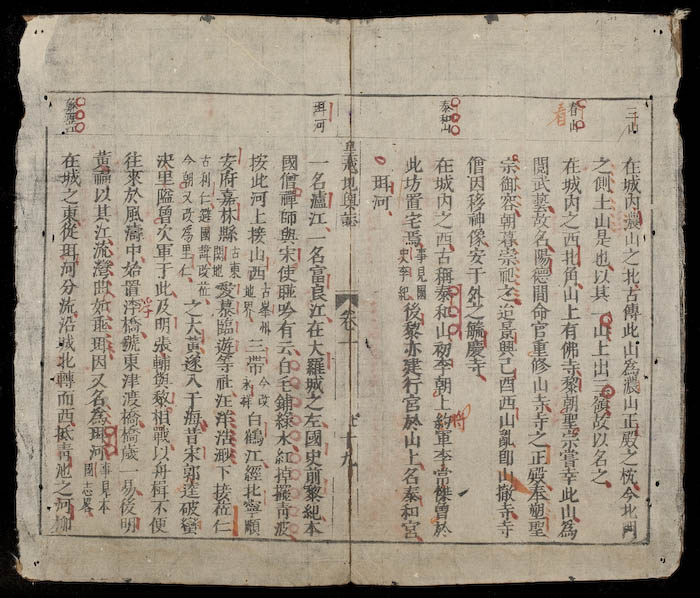 三山
在城内濃山之北古傳此山為濃山正殿之枕今北門
之側土山是也以其一山上出三嶺故以名之
春山
看
在城内之西北角山上有佛寺黎朝聖宗嘗幸此山為
閲武藝故名陽德間命官重修山寺寺之正殿奉塑聖
宗御容朝暮崇祀之迨景興己酉西山亂卽山撤寺寺
僧因移神像安于外之毓慶寺
泰和山
在城内之西古稱泰和山初李朝上將軍李常傑曾於
此坊置宅焉事見國史李紀後黎亦建行宮於山上名泰和宮
珥河
皇越地輿誌
卷一
七十九
珥河
一名瀘江一名富良江在大羅城之左國史前黎紀本
國僧禪師與宋使聯吟有云白毛鋪綠水紅掉擺青波
按此河上接山西古峯州地界三帶今改永祥白鶴江經北寧順
安府嘉林縣古東閑地愛慕臨遊等社汪洋浩渺下接莅仁
古利仁縫國諱改莅今朝又改為里仁之大黃遂入于海昔宋郭逵破蠻
決里隘曾次軍于此及明張輔與黎相戰以舟楫不便
往來於風濤中始置浮橋號東津渡橋橋歲一易後明
浮
黃福以其江流灣曲如垂珥因又名為珥河事見本國志畧
蘇瀝江
在城之東從珥河分流沿城北轉而西抵青池之河柳